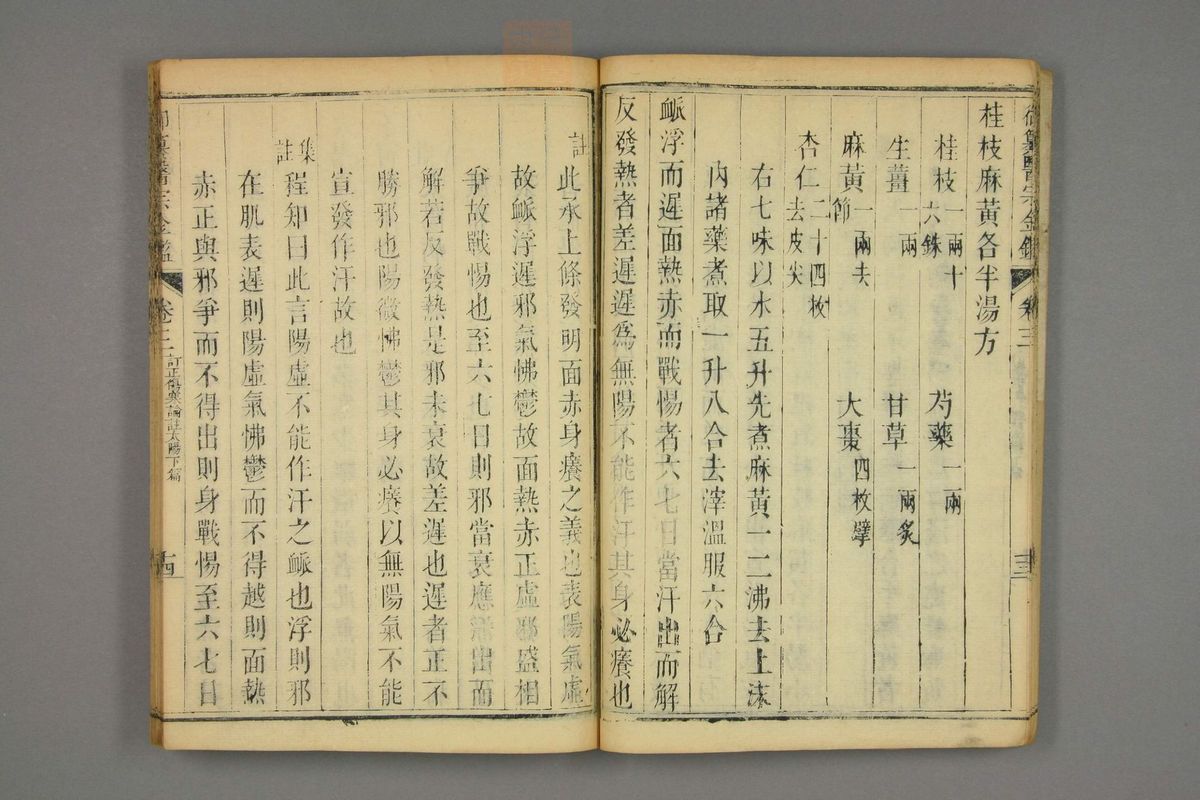 御纂醫宗金鑑 卷三 十三
桂枝麻黃各半湯方
桂枝一兩十六銖 芍藥一兩
生薑一兩 甘草一兩炙
麻黃一兩去節 大棗四枚擘
杏仁二十四枚去皮尖
右七味以水五升先煮麻黃一二沸去上沫
內諸藥煮取一升八合去滓溫服六合
衇浮而遲面熱赤而戰惕者六七日當汗出而解
反發熱者差遲遲爲無陽不能作汗其身必癢也
註 此承上條發明面赤身癢之義也表陽氣虛
故衇浮遲邪氣怫鬱故面熱赤正虛邪盛相
爭故戰惕也至六七日則邪當衰應汗出而
解若反發熱是邪未衰故差遲也遲者正不
勝邪也陽微怫鬱其身必癢以無陽氣不能
宣發作汗故也
集註 程知曰此言陽虛不能作汗之衇也浮則邪
在肌表遲則陽虛氣怫鬱而不得越則面熱
赤正與邪爭而不得出則身戰惕至六七日
御纂醫宗金鑑 卷三 訂正傷寒論註太陽下篇 十四